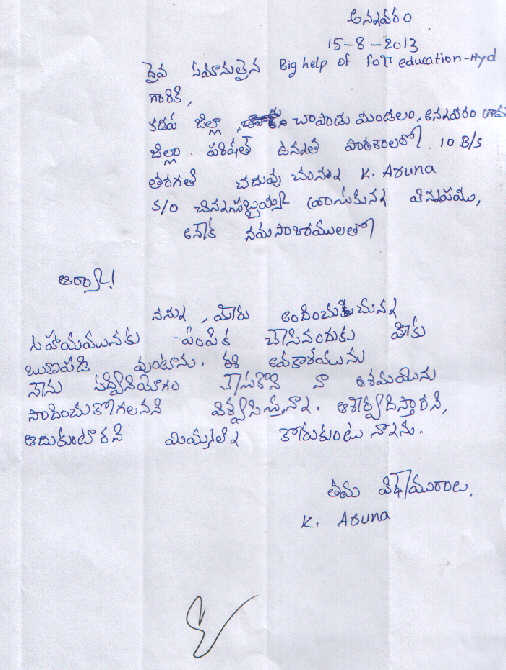 అన్నవరం
15-8-2013
దైవ సమానులైన Big help of for education-Hyd
గారికి,
కడప జిల్లా, చాపాడు మండలం, అన్నవరం గ్రామ
జిల్లా పరిషత్ ఉన్నత పాఠశాలలో 10 B/S
తరగతి చదువుచున్న K. Aruna
S/O చిన్నసుబ్బయ్య వ్రాయుకున్న విన్నపము,
అనేక నమస్కారములతో
ఆర్యా!
నన్ను, మీరు అందించుచున్న
సహాయమునకు ఎంపిక చేసినందుకు మీకు
ఋణపడి వుంటాను. ఈ అవకాశమును
నేను సద్వినియోగం చేసుకొని నా ఆశయమును
సాధించుకోగలనని విశ్వసిస్తున్నాను. ఆశీర్వదిస్తారని,
ఆదుకుంటారని మిమ్మల్ని కోరుకుంటున్నాను.
తమ విధేయురాలు,
K. Aruna